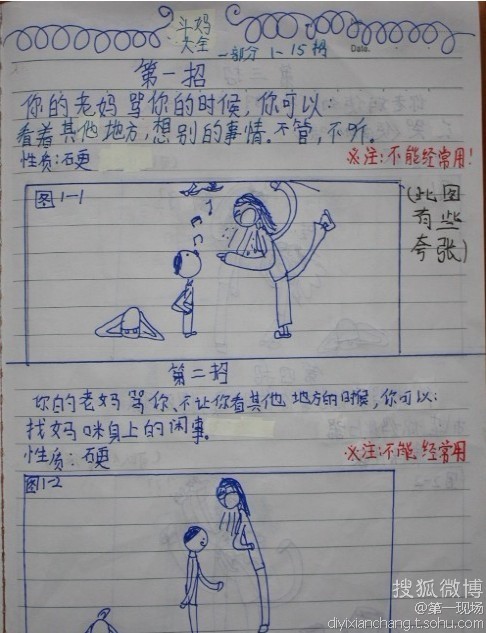 斗妈
大全
一部分 1-15招
Date.
第一招
你的老妈骂你的时候,你可以:
看着其他地方,想别的事情。不管,不听。
性质:石更
※注:不能经常用!
图1-1
(此图
有些
夸张)
第二招
你的老妈骂你、不让你看其他地方的时候,你可以:
找妈咪身上的闲事。
性质:石更
※注:不能经常用
图1-2
搜狐微博
@第一现场
diyixianchang.t.sohu.com